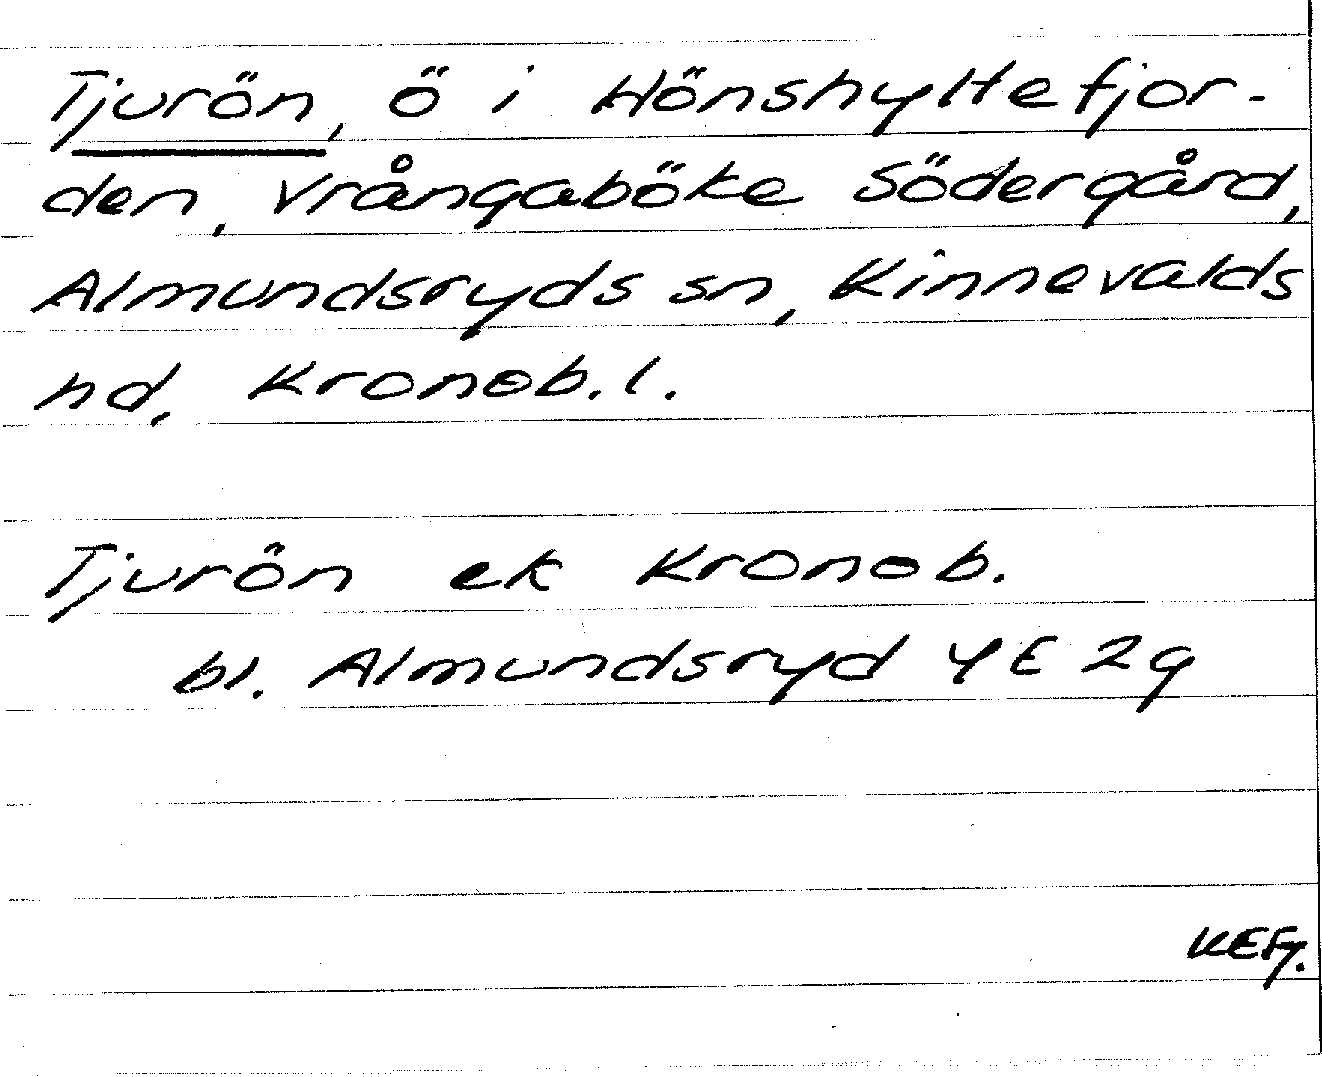 Tjurön, ö i Hönshyltefjor-
den, Vrångaböke Södergård,
Almundsryds sn, Kinnevalds
hd, Kronob. l.
Tjurön ek Kronob.
bl. Almundsryd 4E 2g
KEFj.